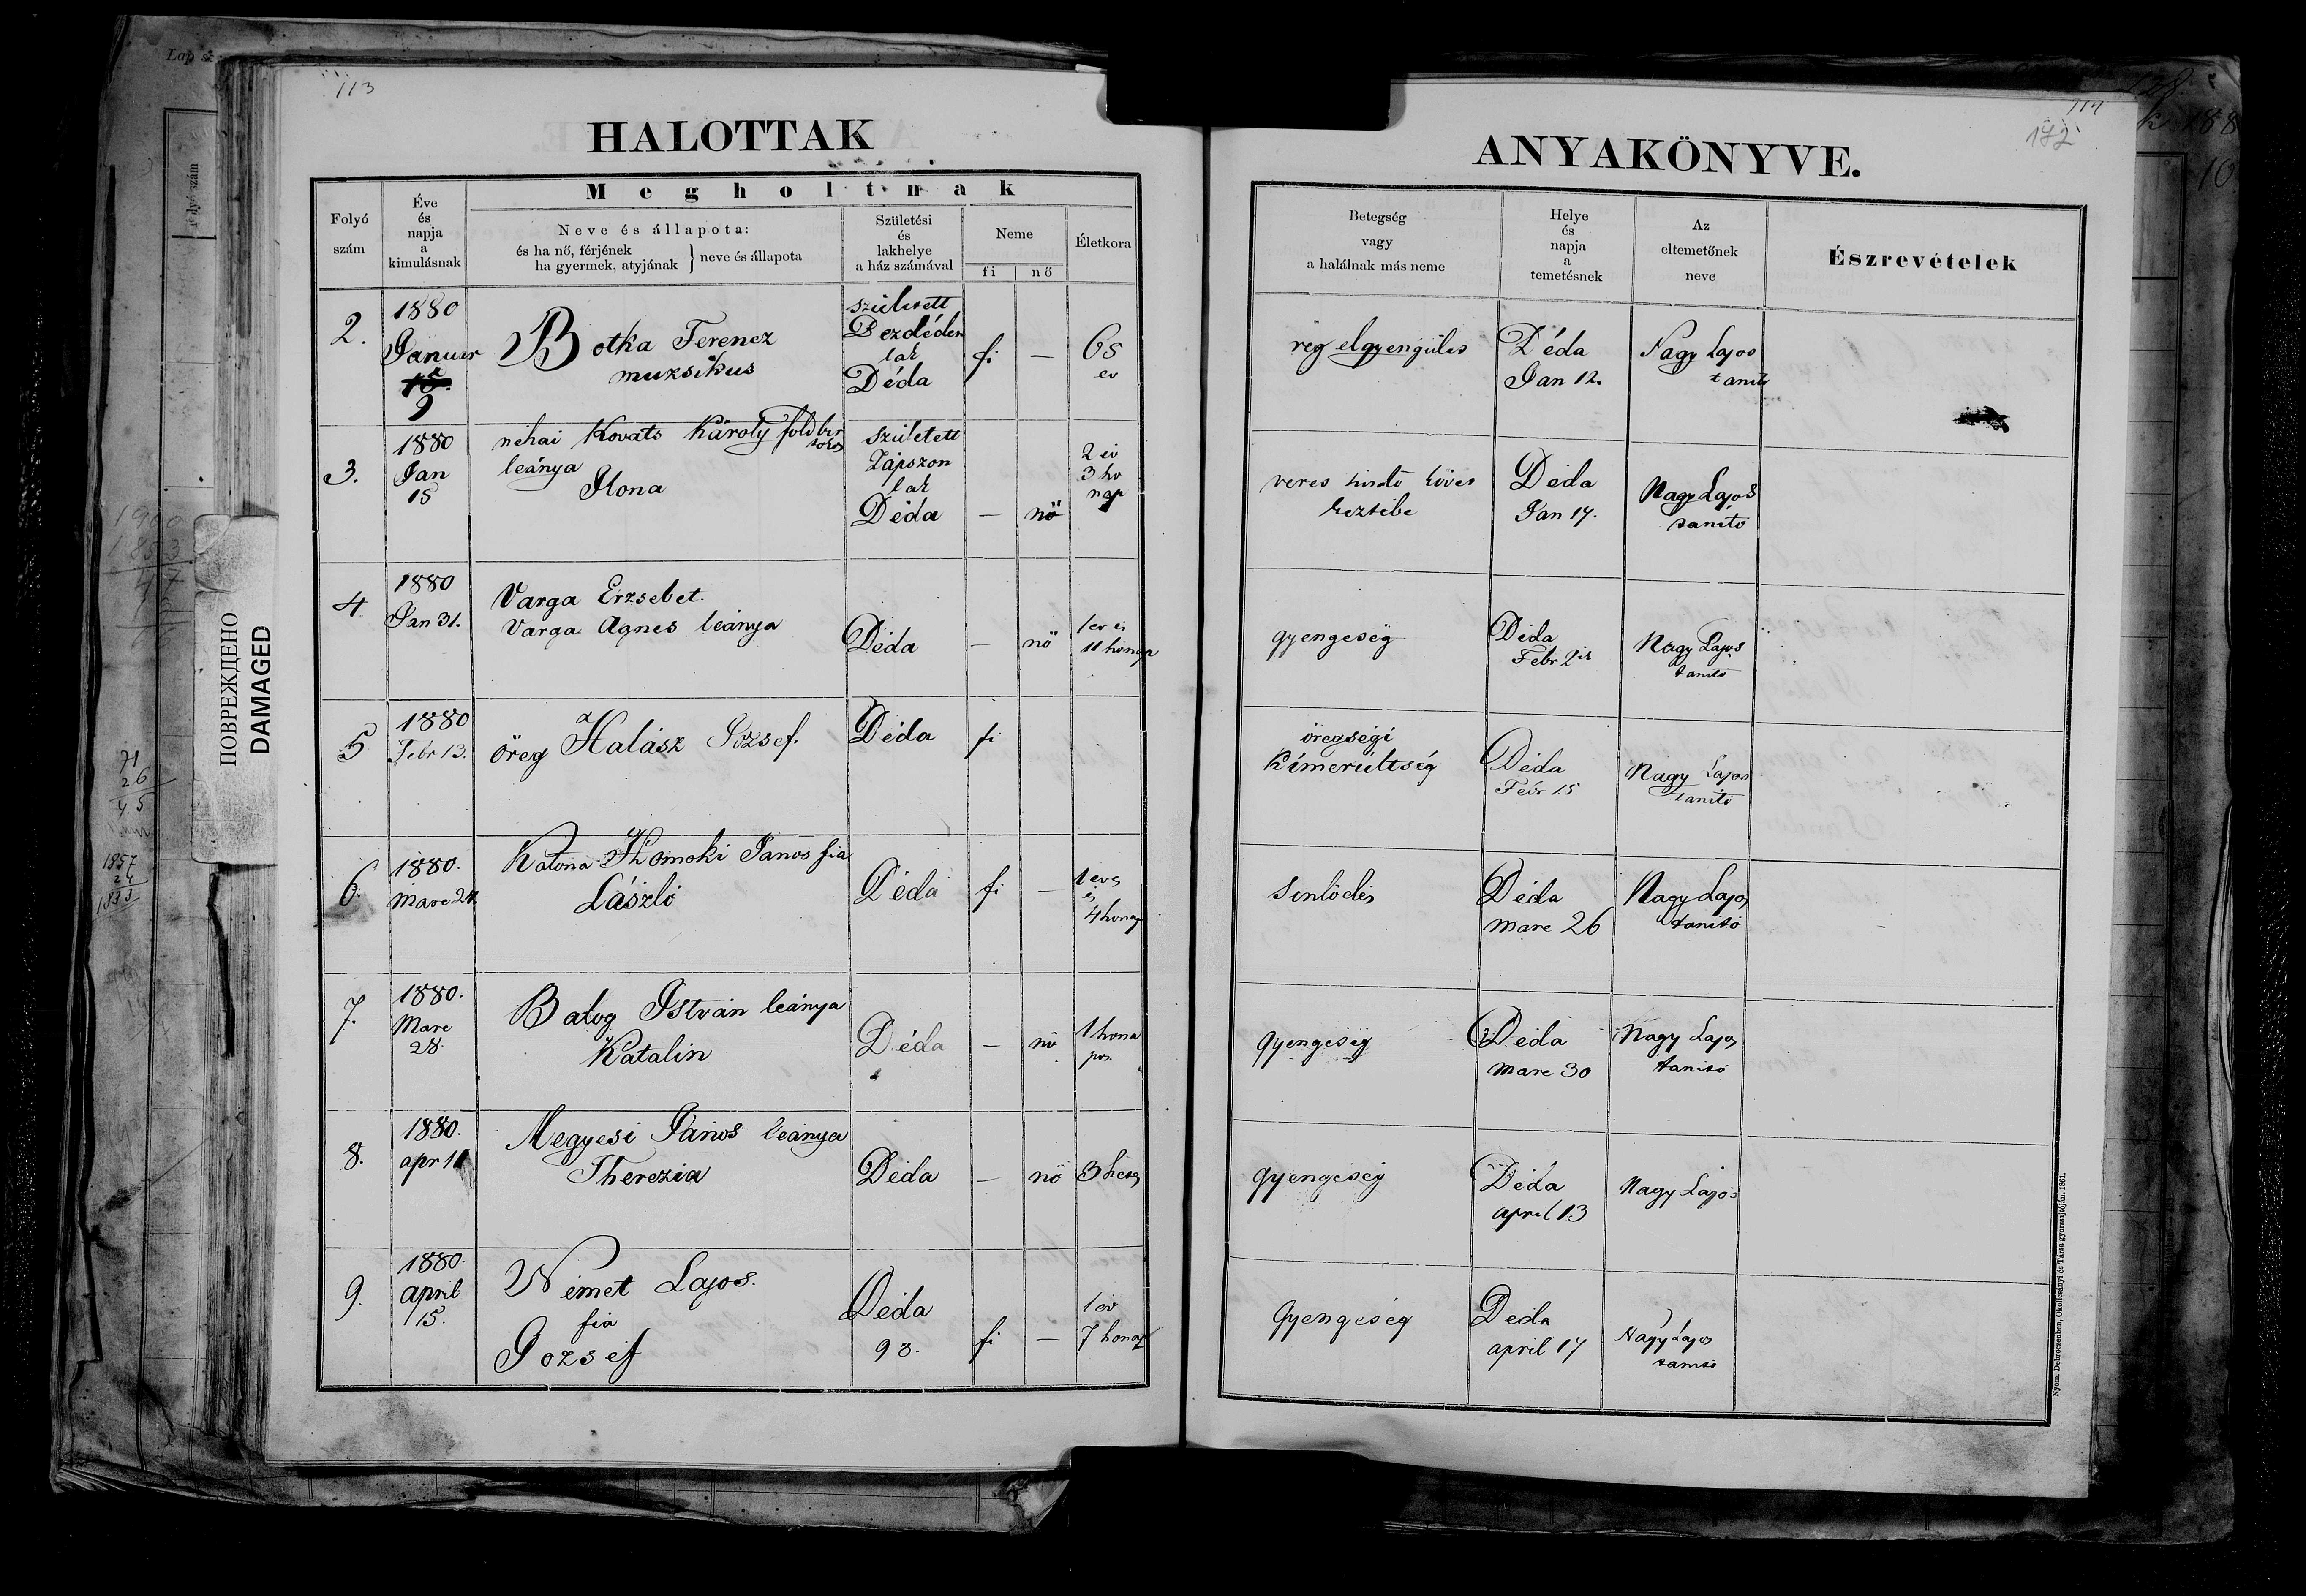 113
HALOTTAK
Megholtnak
Folyó
szám
Éve
és
napja
a
kimulásnak
Neve és állapota:
és ha nő, férjének
ha gyermek, atyjának } neve és állapota
Születési
és
lakhelye
a ház számával
Neme
fi
nő
Életkora
2.
1880
Januar
9
Botka Ferencz
muzsikus
született
Bezdéden
lak
Déda
fi
—
65
ev
3.
1880
Jan
15
néhai Kovats Károly földbir
tokos
leánya
Ilona
született
Zápszon
lak
Déda
—
nő
2 év
3 ho
nap
4
1880
Jan 31.
Varga Erzsebet.
Varga Agnes leánya
Déda
—
nő
1 ev és
11 honap
5
1880
Febr 13.
öreg Halász József.
Déda
fi
6.
1880.
Marc 24.
Katona Homoki Janos fia
László
Déda
fi
—
1 eves
és
4 honap
7.
1880.
Marc
28.
Balog István leánya
Katalin
Déda
—
nő
1 hona
pos
8.
1880.
apr 11
Megyesi János leánya
Therezia
Déda
—
nő
3 hetes
9.
1880.
april
15.
Német Lajos.
fia
József
Déda
98.
fi
—
1 év
7 honap
ПОВРЕЖДЕНО
DAMAGED
1857
24
1833
ANYAKÖNYVE.
Betegség
vagy
a halálnak más neme
Helye
és
napja
a
temetésnek
Az
eltemetőnek
neve
Észrevételek
vég elgyengülés
Déda
Jan 12.
Nagy Lajos
tanito
veres
Déda
Jan 17.
Nagy Lajos
tanító
gyengeség
Déda
Febr 2
Nagy Lajos
tanito
öregségi
kimerültség
Déda
Febr 15
Nagy Lajos
tanitó
Sinlődés
Déda
marc 26
Nagy Lajos
tanító
gyengeség
Déda
marc 30
Nagy Lajos
tanitó
gyengeség
Déda
april 13
Nagy Lajos
gyengeség
Déda
april 17
Nagy Lajos
tanito
Nyom. Debreczenben, Okolicsányi és Társa gyorssajtóján. 1861.